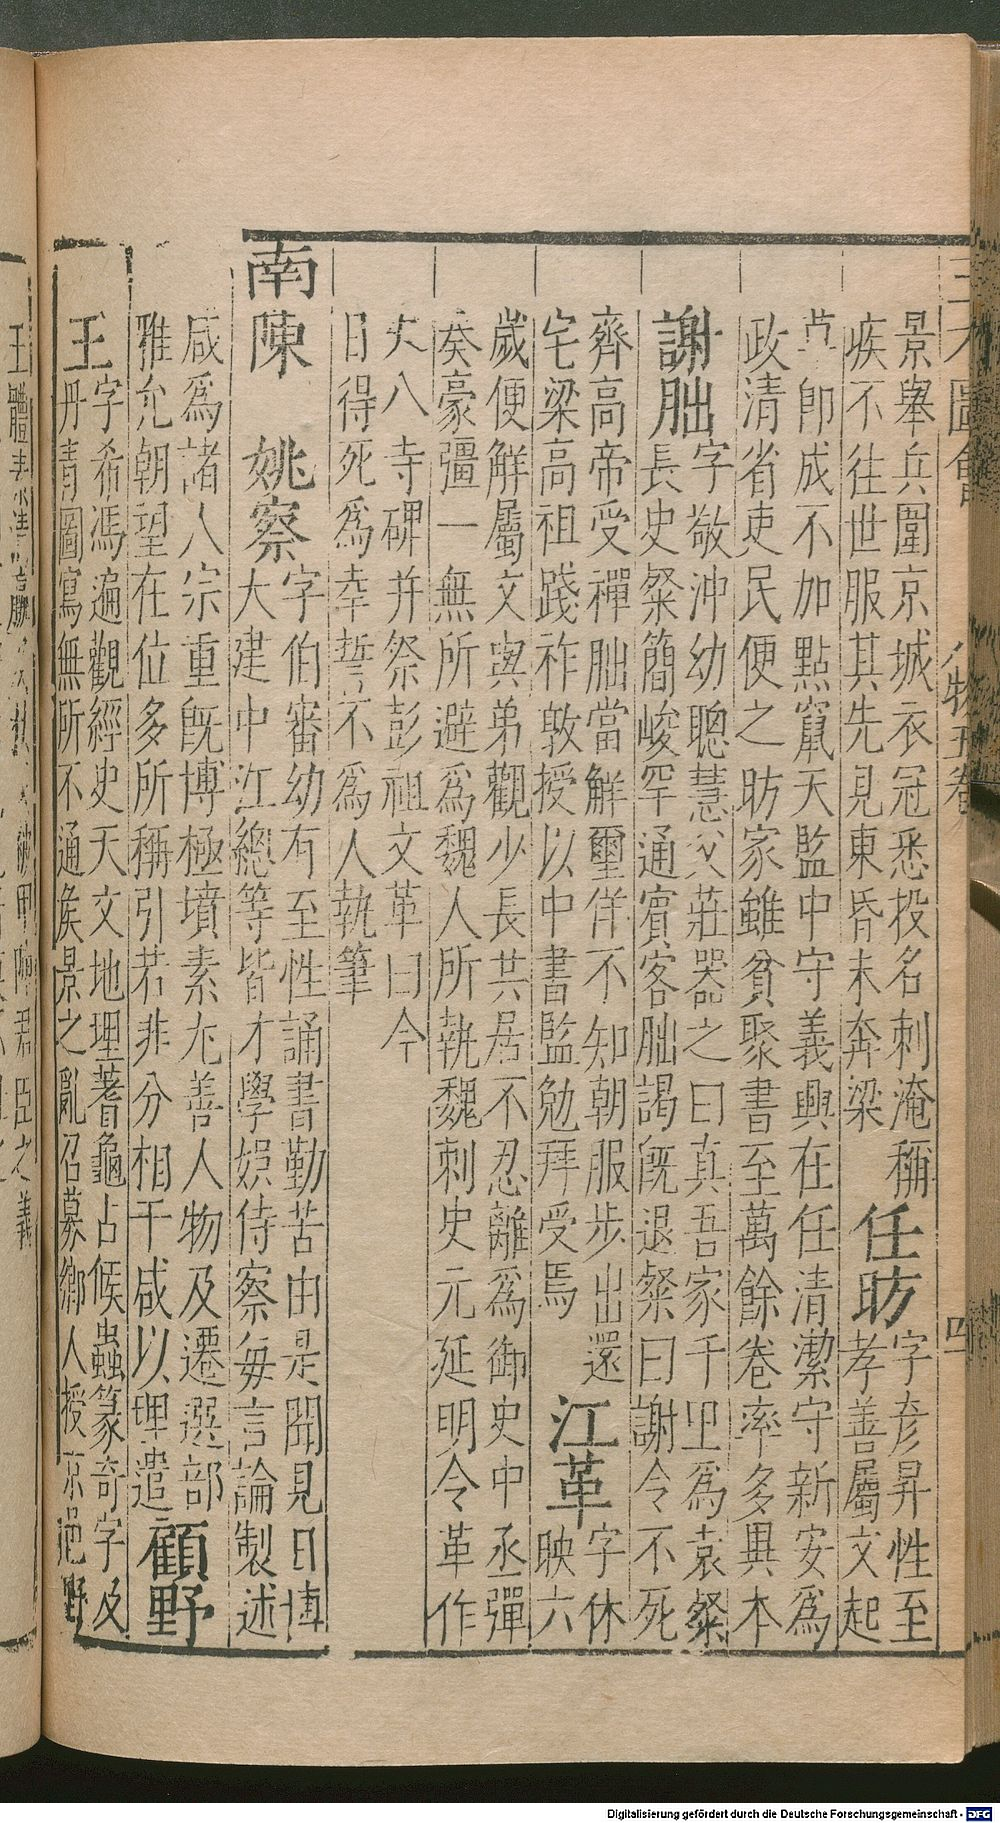 三才圖會 人物五卷 四
景舉兵圍京城衣冠悉投名刺淹稱
疾不往世服其先見東昏未奔梁
任昉
字彦昇性至
孝善屬文起
草卽成不加點竄天監中守義興在任清潔守新安爲
政清省吏民便之昉家雖貧聚書至萬餘卷率多異本
謝朏
字敬沖幼聰慧父莊器之曰真吾家千里爲袁粲
長史粲簡峻罕通賓客朏謁旣退粲曰謝令不死
齊高帝受禪朏當解璽佯不知朝服步出還
宅梁高祖踐祚敦授以中書監勉拜受焉
江革
字休
映六
歲便解屬文與弟觀少長共居不忍離爲御史中丞彈
奏豪彊一無所避爲魏人所執魏刺史元延明令革作
大八寺碑并祭彭祖文革曰今
日得死爲幸誓不爲人執筆
南陳
姚察
字伯審幼有至性誦書勤苦由是聞見日博
大建中江總等皆才學娯侍察每言論製述
咸爲諸人宗重旣博極墳素尤善人物及遷選部
雅允朝望在位多所稱引若非分相干咸以理遣
顧野
王
字希馮遍觀經史天文地理蓍龜占候蟲篆奇字及
丹青圖寫無所不通矦景之亂召募鄉人授京邑野
Digitalisierung gefördert durch die Deutsche Forschungsgemeinschaft - DFG